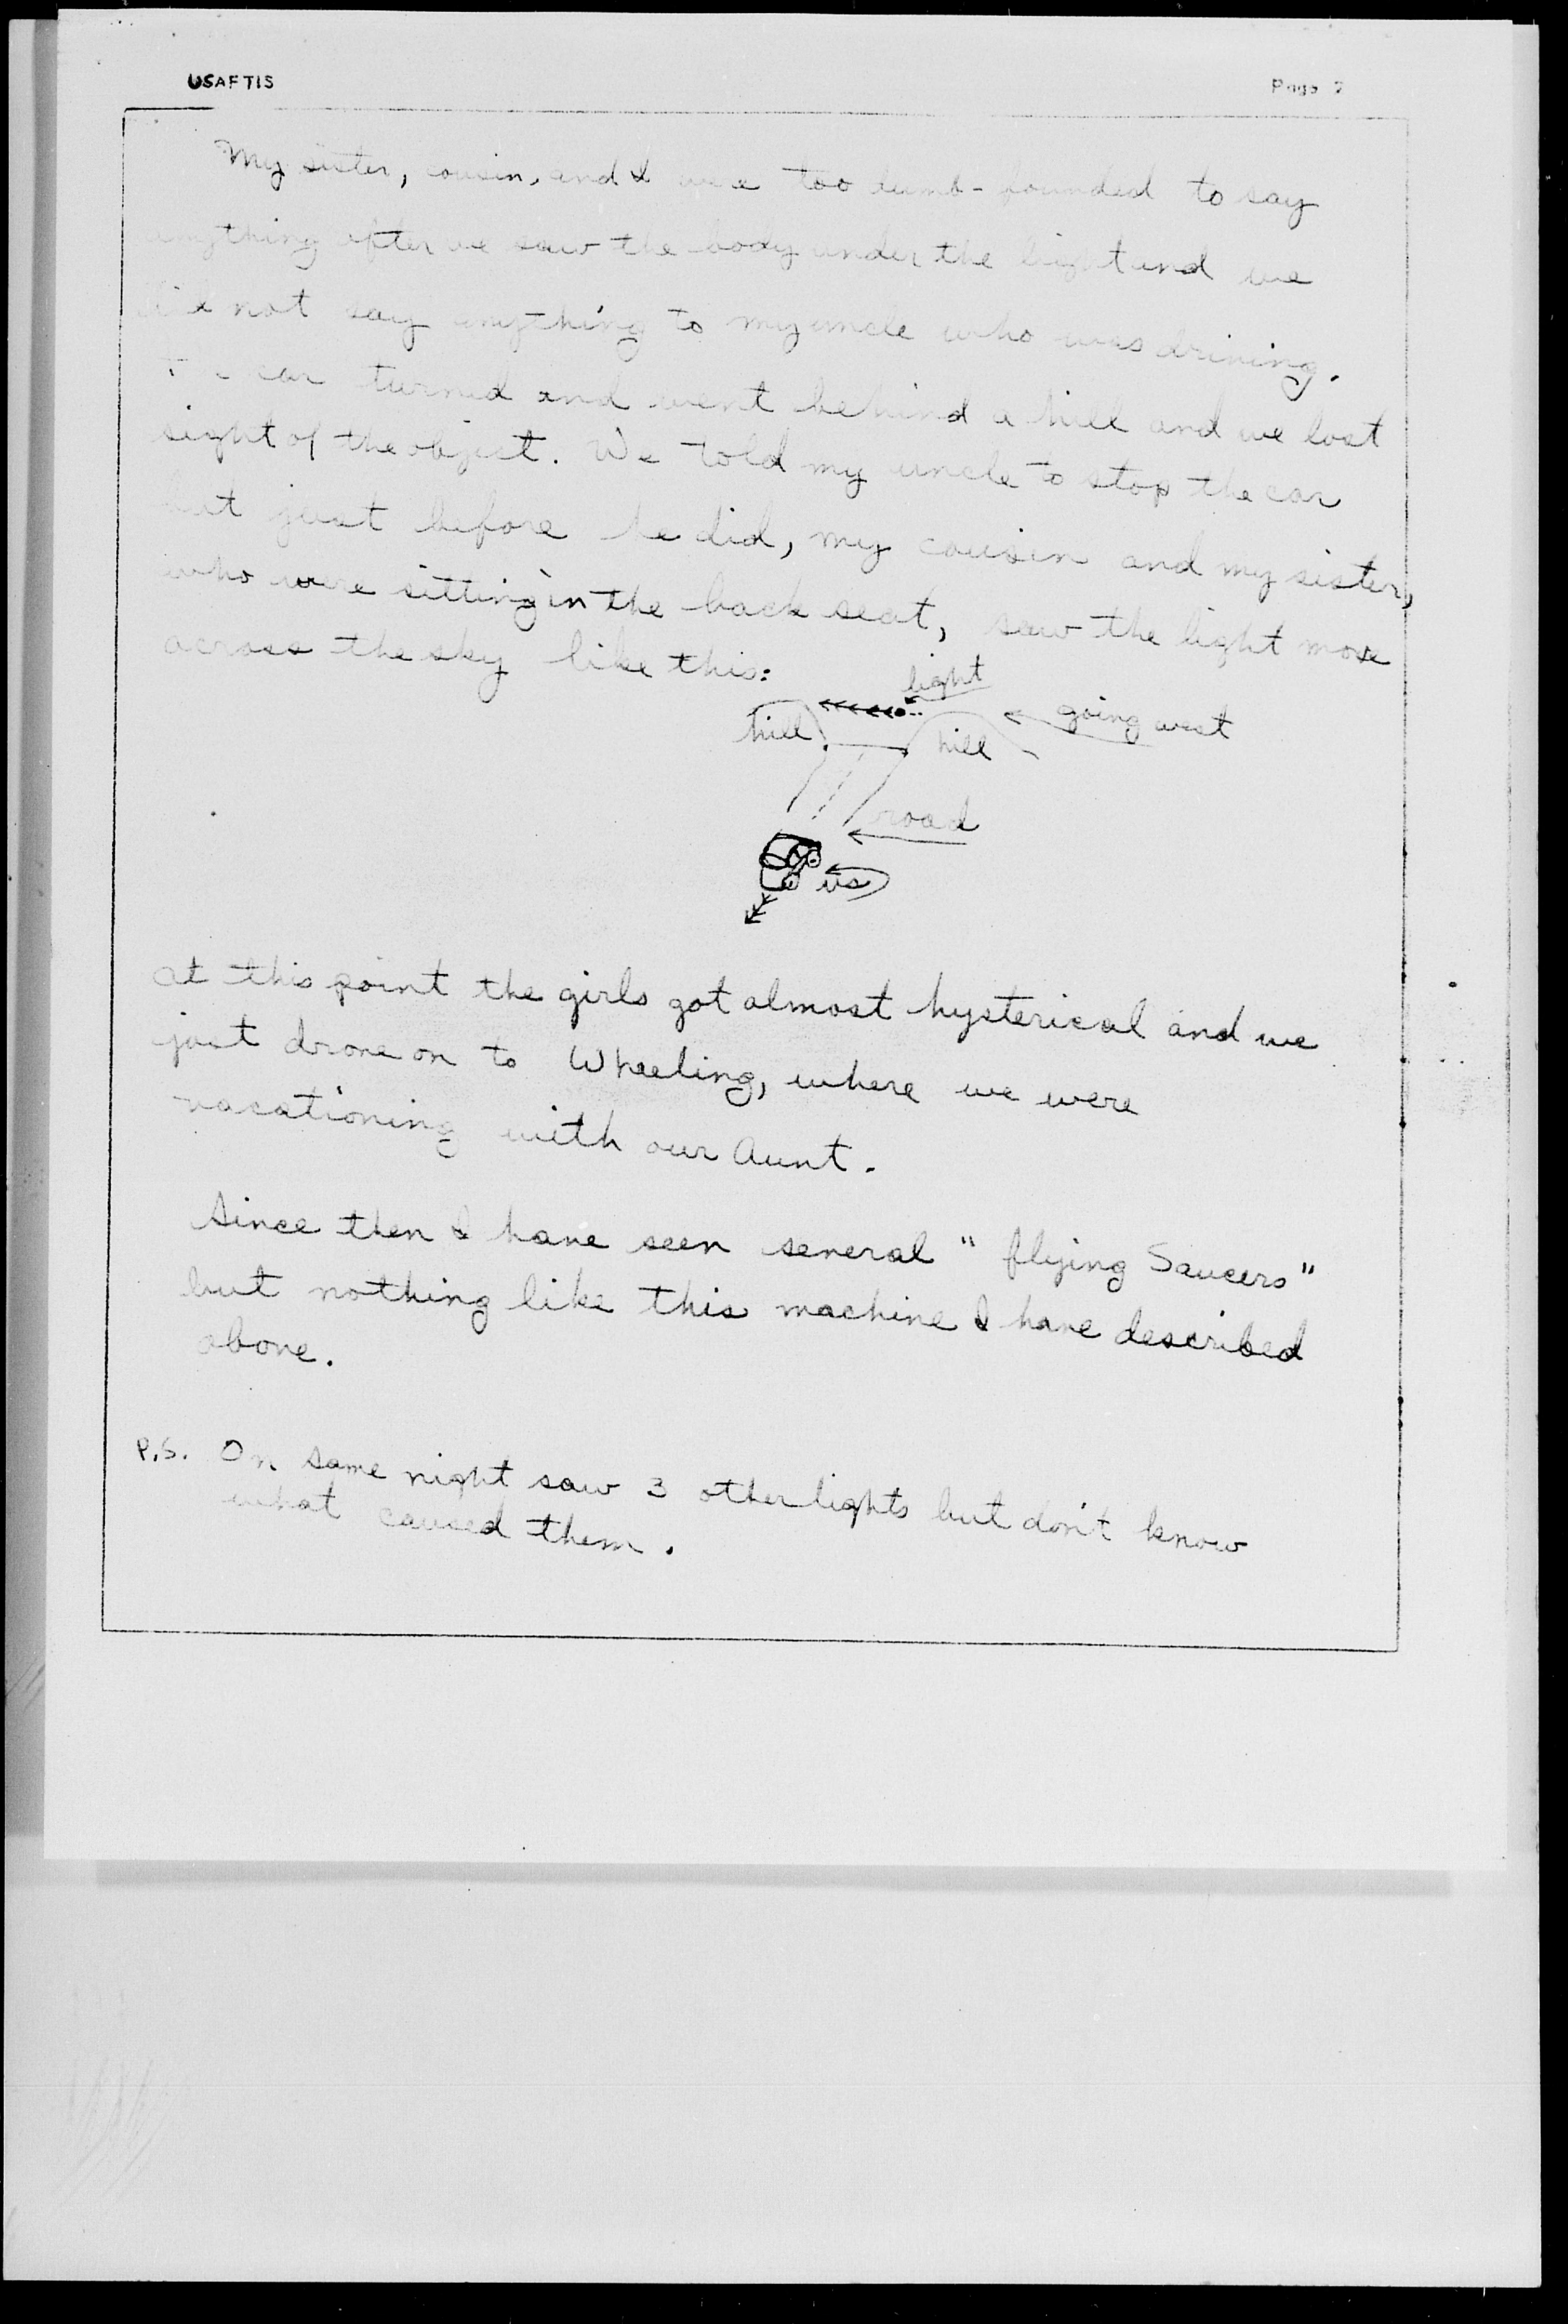 USAFTIS
Page 2
My sister, cousin, and I were too dumb-founded to say
anything after we saw the body under the light and we
did not say anything to my uncle who was driving.
The car turned and went behind a hill and we lost
sight of the object. We told my uncle to stop the car
but just before he did, my cousin and my sister,
who were sitting in the back seat, saw the light move
across the sky like this:
light
hill
hill
going west
road
us
at this point the girls got almost hysterical and we
just drove on to Wheeling, where we were
vacationing with our Aunt.
Since then I have seen several "flying Saucers"
but nothing like this machine I have described
above.
P.S. On same night saw 3 other lights but don't know
what caused them.